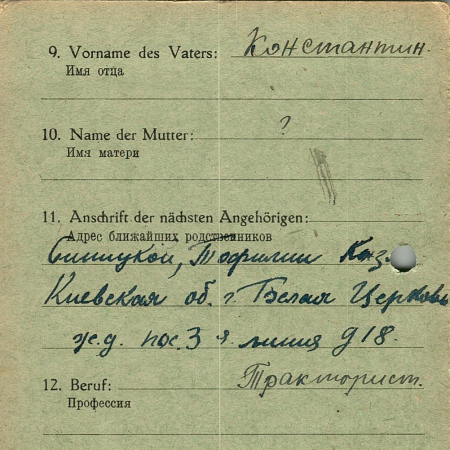 9. Vorname des Vaters: Константин.
Имя отца
10. Name der Mutter: ?
Имя матери
11. Anschrift der nächsten Angehörigen:
Адрес ближайших родственников
Синицкой, Тофилии Каз
Киевская об. г. Белая Церковь
ж.д. пос. 3 я линия д 18.
12. Beruf: Тракторист.
Профессия